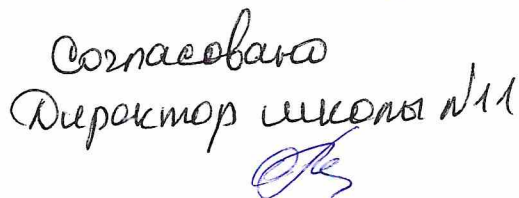 Согласовано
Директор школы №11